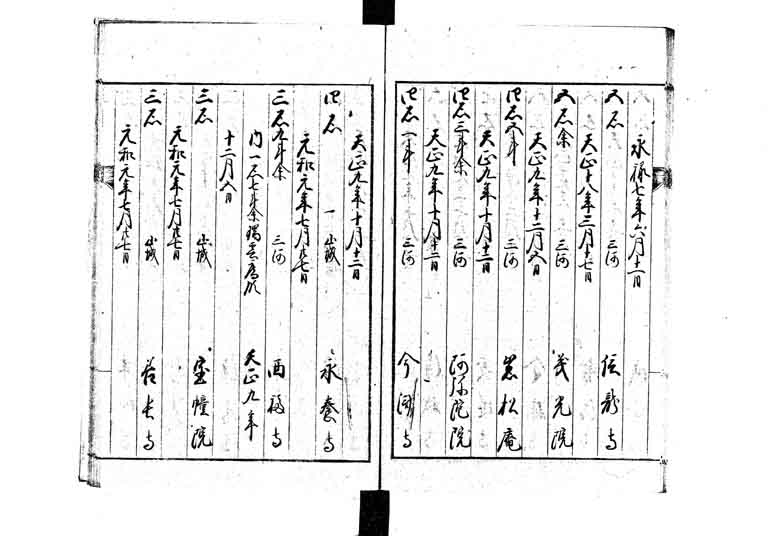 永禄七年六月十一日
五石 三河 伝龍寺
天正十八年三月十七日
五石余 三河 光院
天正九年十二月八日
四石九斗 三河 松庵
天正九年十月十二日
四石三斗余 三河 阿弥陀院
天正九年十月十二日
四石一斗 三河 今
天正九年十月十二日
四石 山城 永養寺
元和元年七月廿七日
三石九斗余 三河 西福寺
内一石七斗余 天正九年
十二月八日
三石 山城 宝幢院
元和元年七月廿七日
三石 山城 寺
元和元年七月廿七日